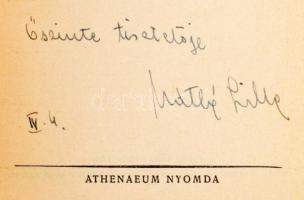 Őszinte tisztelője
Máthé Lilla
IV. 4.
ATHENAEUM NYOMDA